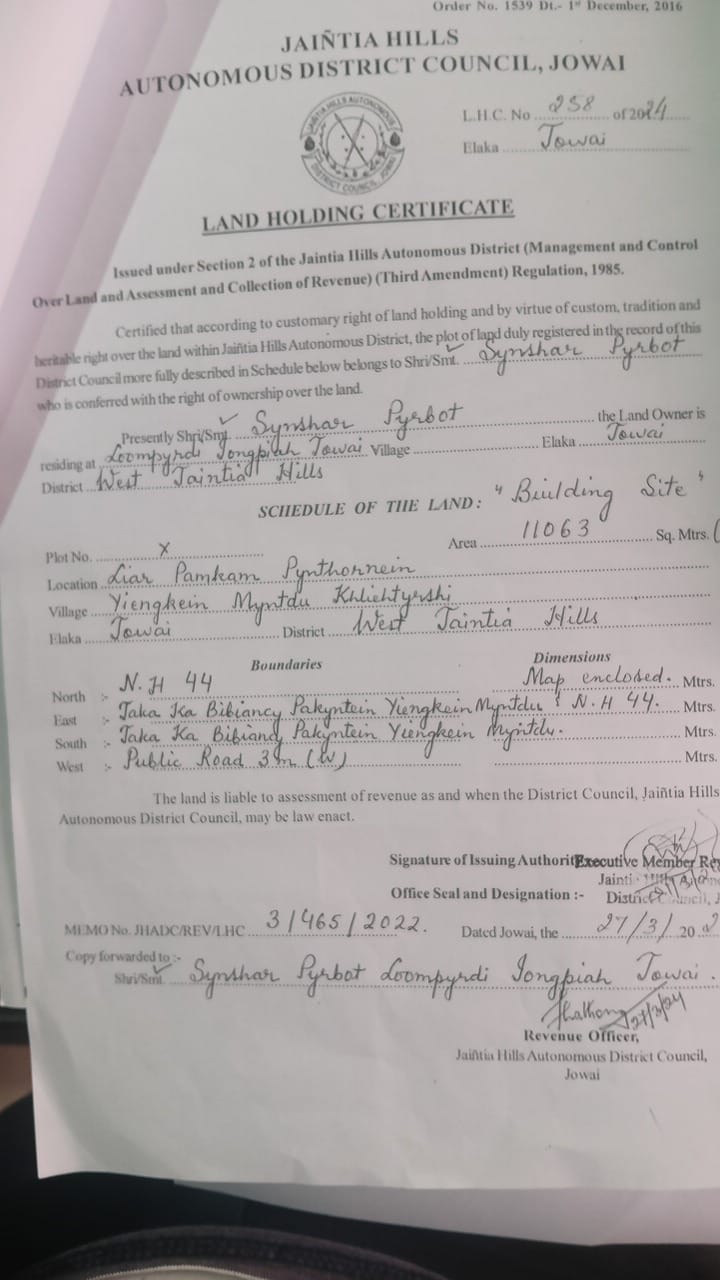 Order No. 1539 Dt.- 1st December, 2016
JAIÑTIA HILLS
AUTONOMOUS DISTRICT COUNCIL, JOWAI
L.H.C. No 258 of 2024
Elaka Jowai
JAIÑTIA HILLS AUTONOMOUS DISTRICT COUNCIL, JOWAI
LAND HOLDING CERTIFICATE
Issued under Section 2 of the Jaintia Hills Autonomous District (Management and Control
Over Land and Assessment and Collection of Revenue) (Third Amendment) Regulation, 1985.
Certified that according to customary right of land holding and by virtue of custom, tradition and
heritable right over the land within Jaiñtia Hills Autonomous District, the plot of land duly registered in the record of this
District Council more fully described in Schedule below belongs to Shri/Smt. Synshar Pyrbot
who is conferred with the right of ownership over the land.
Presently Shri/Smt. Synshar Pyrbot the Land Owner is
residing at Loompyrdi Iongpiah Jowai Village Elaka Jowai
District West Jaintia Hills
SCHEDULE OF THE LAND: "Building Site"
Plot No. X Area 11063 Sq. Mtrs. (
Location Liar Pamkam Pynthornein
Village Yiengkein Myntdu Khliehtyrshi
Elaka Jowai District West Jaintia Hills
Boundaries Dimensions
North :- N.H 44 Map enclosed. Mtrs.
East :- Jaka Ka Bibiancy Pakyntein Yiengkein Myntdu & N.H 44. Mtrs.
South :- Jaka Ka Bibiancy Pakyntein Yiengkein Myntdu. Mtrs.
West :- Public Road 3m (W) Mtrs.
The land is liable to assessment of revenue as and when the District Council, Jaiñtia Hills
Autonomous District Council, may be law enact.
Signature of Issuing Authority Executive Member Rev
Jaintia Hills
Office Seal and Designation :- District Council, J
MEMO No. JHADC/REV/LHC 3/465/2022. Dated Jowai, the 27/3/202
Copy forwarded to :-
Shri/Smt. Synshar Pyrbot Loompyrdi Iongpiah Jowai.
27/3/24
Revenue Officer,
Jaiñtia Hills Autonomous District Council,
Jowai